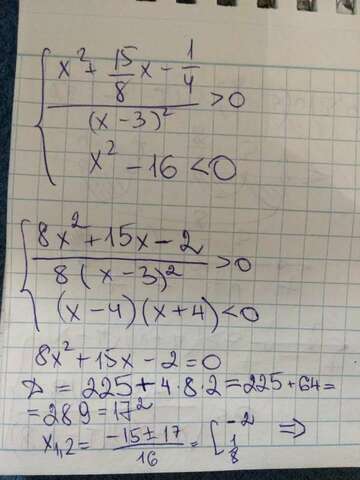 { (x² + 15/8 x − 1/4) / (x − 3)² > 0
x² − 16 < 0
{ (8x² + 15x − 2) / 8(x − 3)² > 0
(x − 4)(x + 4) < 0
8x² + 15x − 2 = 0
D = 225 + 4·8·2 = 225 + 64 =
= 289 = 17²
x₁,₂ = (−15 ± 17) / 16 = [ −2 1/8 ⇒